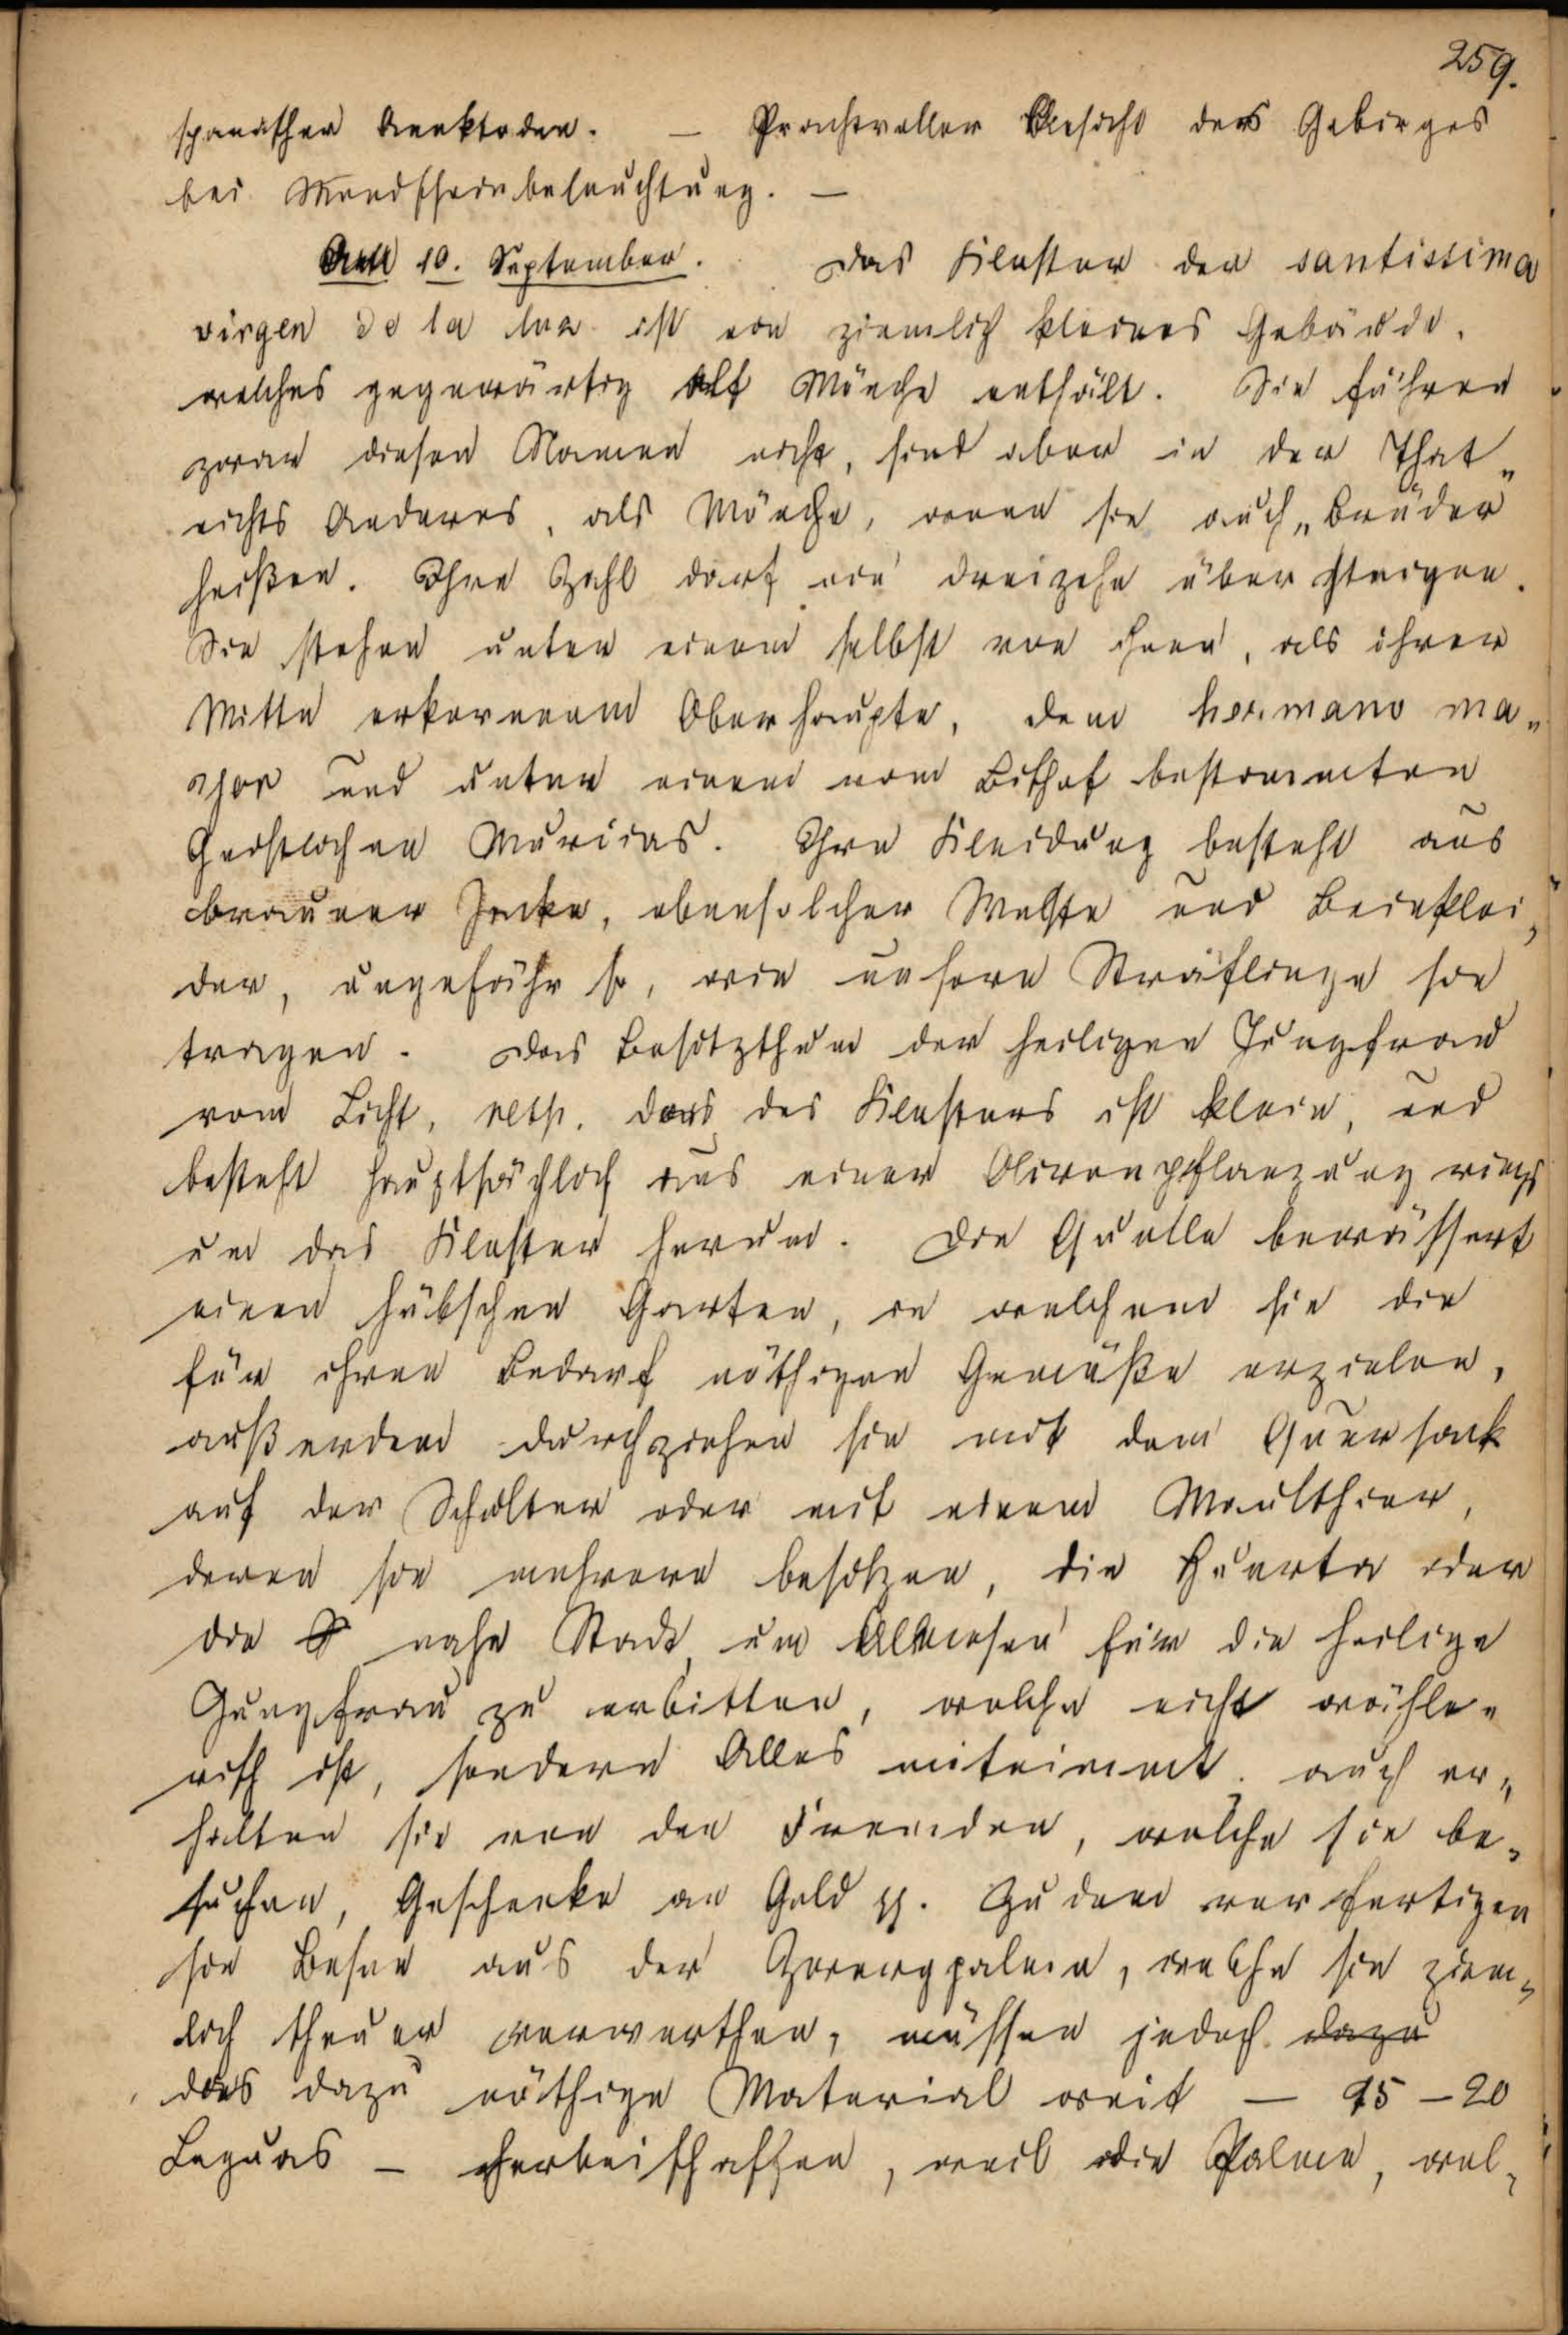 259.
spanischen Anektoden. — Prachtvoller Ansicht des Gebirges
bei Mondscheinbeleuchtung. —
Am 10. September. Das Kloster der santissima
virgen de la luz ist ein ziemlich kleines Gebäude,
welches gegenwärtig elf Mönche enthält. Sie führen
zwar diesen Namen nicht, sind aber in der That
nichts Anderes, als Mönche, wenn sie auch „Brüder“
heißen. Ihre Zahl darf nie dreizehn übersteigen.
Sie stehen unter einem selbst von ihnen, als ihrer
Mitte erkorenem Oberhaupte, dem hermano ma„
yor und unter einem vom Bischof bestimmten
Geistlichen Murcias. Ihre Kleidung besteht aus
brauner Jacke, ebensolcher Weste und Beinklei„
der, ungefähr so, wie unsere Sträflinge sie
tragen. Das Besitzthum der heiligen Jungfrau
vom Licht, resp. das des Klosters ist klein, und
besteht hauptsächlich aus einer Olivenpflanzung rings
um das Kloster herum. Die Quelle bewässert
einen hübschen Garten, in welchem sie die
für ihren Bedarf nöthigen Gemüße erzielen,
außerdem durchziehen sie mit dem Quersack
auf der Schulter oder mit einem Maulthier,
deren sie mehrere besitzen, die Huerta oder
die nahe Stadt um Almosen für die heilige
Jungfrau zu erbitten, welche nicht wähle„
risch ist, sondern Alles mitnimmt. auch er„
halten sie von den Fremden, welche sie be„
suchen, Geschenke an Geld pp. Zudem verfertigen
sie Besen aus der Zwergpalme, welche sie ziem„
lich theuer verwerthen, müssen jedoch dazu
das dazu nöthige Material weit — 15 – 20
Leguas — herbeischaffen, weil die Palme, wel„